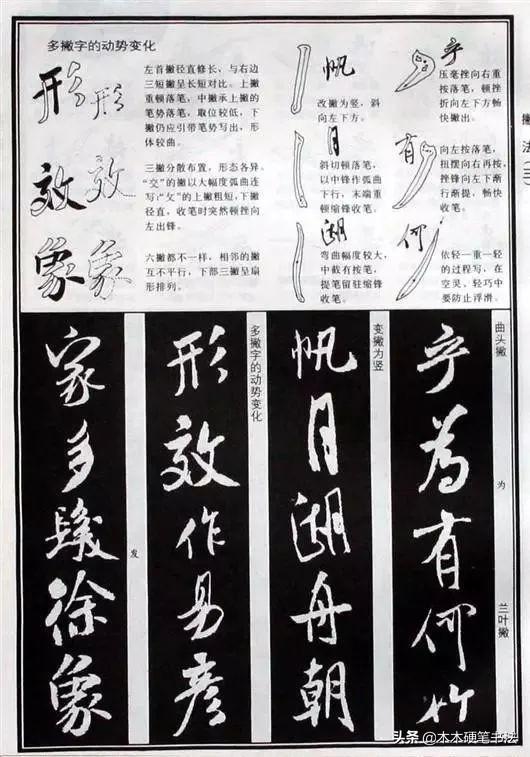 多撇字的动势变化
形形
左首撇径直修长，与右边
三短撇呈长短对比。上撇
重顿落笔，中撇承上撇的
笔势落笔，取位较低，下
撇仍应引带笔势写出，形
体较曲。
效效
三撇分散布置，形态各异。
“交”的撇以大幅度弧曲连
写；“攵”的上撇粗短，下撇
径直，收笔时突然顿挫向
左出锋。
象象
六撇都不一样，相邻的撇
互不平行，下部三撇呈扇
形排列。
帆
改撇为竖，斜
向左下方。
月
斜切顿落笔，
以中锋作弧曲
下行，末端重
顿缩锋收笔。
湖
弯曲幅度较大，
中截有按笔，
提笔留驻缩锋
收笔。
乎
压毫挫向右重
按落笔，顿挫
折向左下方畅
快撇出。
有
向左按落笔，
扭摆向右再按，
挫锋向左下渐
行渐提，畅快
收笔。
何
依轻一重一轻
的过程写，在
空灵、轻巧中
要防止浮滑。
曲头撇
为
兰叶撇
乎為有何竹
变撇为竖
帆月湖舟朝
多撇字的动势变化
形效作易彦
发
家多髮徐象
头条@木木硬笔书法